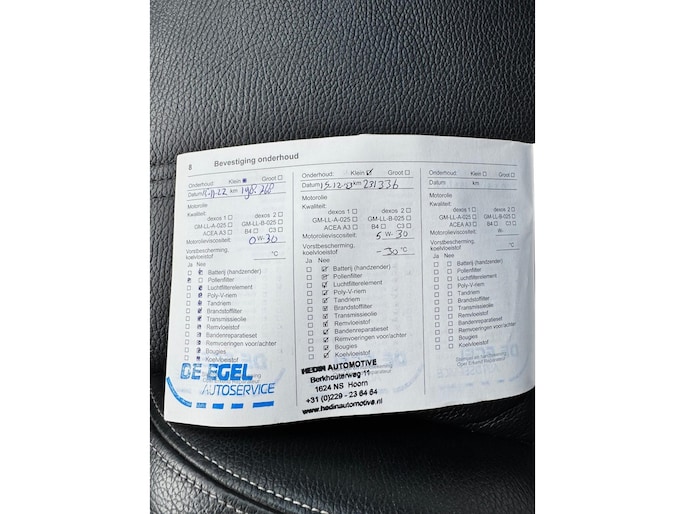 8 Bevestiging onderhoud
Onderhoud: Klein Groot
Datum 198.768 km
Motorolie
Kwaliteit:
dexos 1 dexos 2
GM-LL-A-025 GM-LL-B-025
ACEA A3 B4 C3
Motorolieviscositeit: 0 W- 30
Vorstbescherming,
koelvloeistof °C
Ja Nee
Batterij (handzender)
Pollenfilter
Luchtfilterelement
Poly-V-riem
Tandriem
Brandstoffilter
Transmissieolie
Remvloeistof
Bandenreparatieset
Remvoeringen voor/achter
Bougies
Koelvloeistof
DE EGEL
AUTOSERVICE
Onderhoud: Klein Groot
Datum km 231336
Motorolie
Kwaliteit:
dexos 1 dexos 2
GM-LL-A-025 GM-LL-B-025
ACEA A3 B4 C3
Motorolieviscositeit: 5 W- 30
Vorstbescherming,
koelvloeistof -30 °C
Ja Nee
Batterij (handzender)
Pollenfilter
Luchtfilterelement
Poly-V-riem
Tandriem
Brandstoffilter
Transmissieolie
Remvloeistof
Bandenreparatieset
Remvoeringen voor/achter
Bougies
Koelvloeistof
HEDIN AUTOMOTIVE
Berkhouterweg 11
1624 NS Hoorn
+31 (0)229 - 23 64 64
www.hedinautomotive.nl
Onderhoud: Klein Groot
Datum km
Motorolie
Kwaliteit:
dexos 1 dexos 2
GM-LL-A-025 GM-LL-B-025
ACEA A3 B4 C3
Motorolieviscositeit: W-
Vorstbescherming,
koelvloeistof °C
Ja Nee
Batterij (handzender)
Pollenfilter
Luchtfilterelement
Poly-V-riem
Tandriem
Brandstoffilter
Transmissieolie
Remvloeistof
Bandenreparatieset
Remvoeringen voor/achter
Bougies
Koelvloeistof